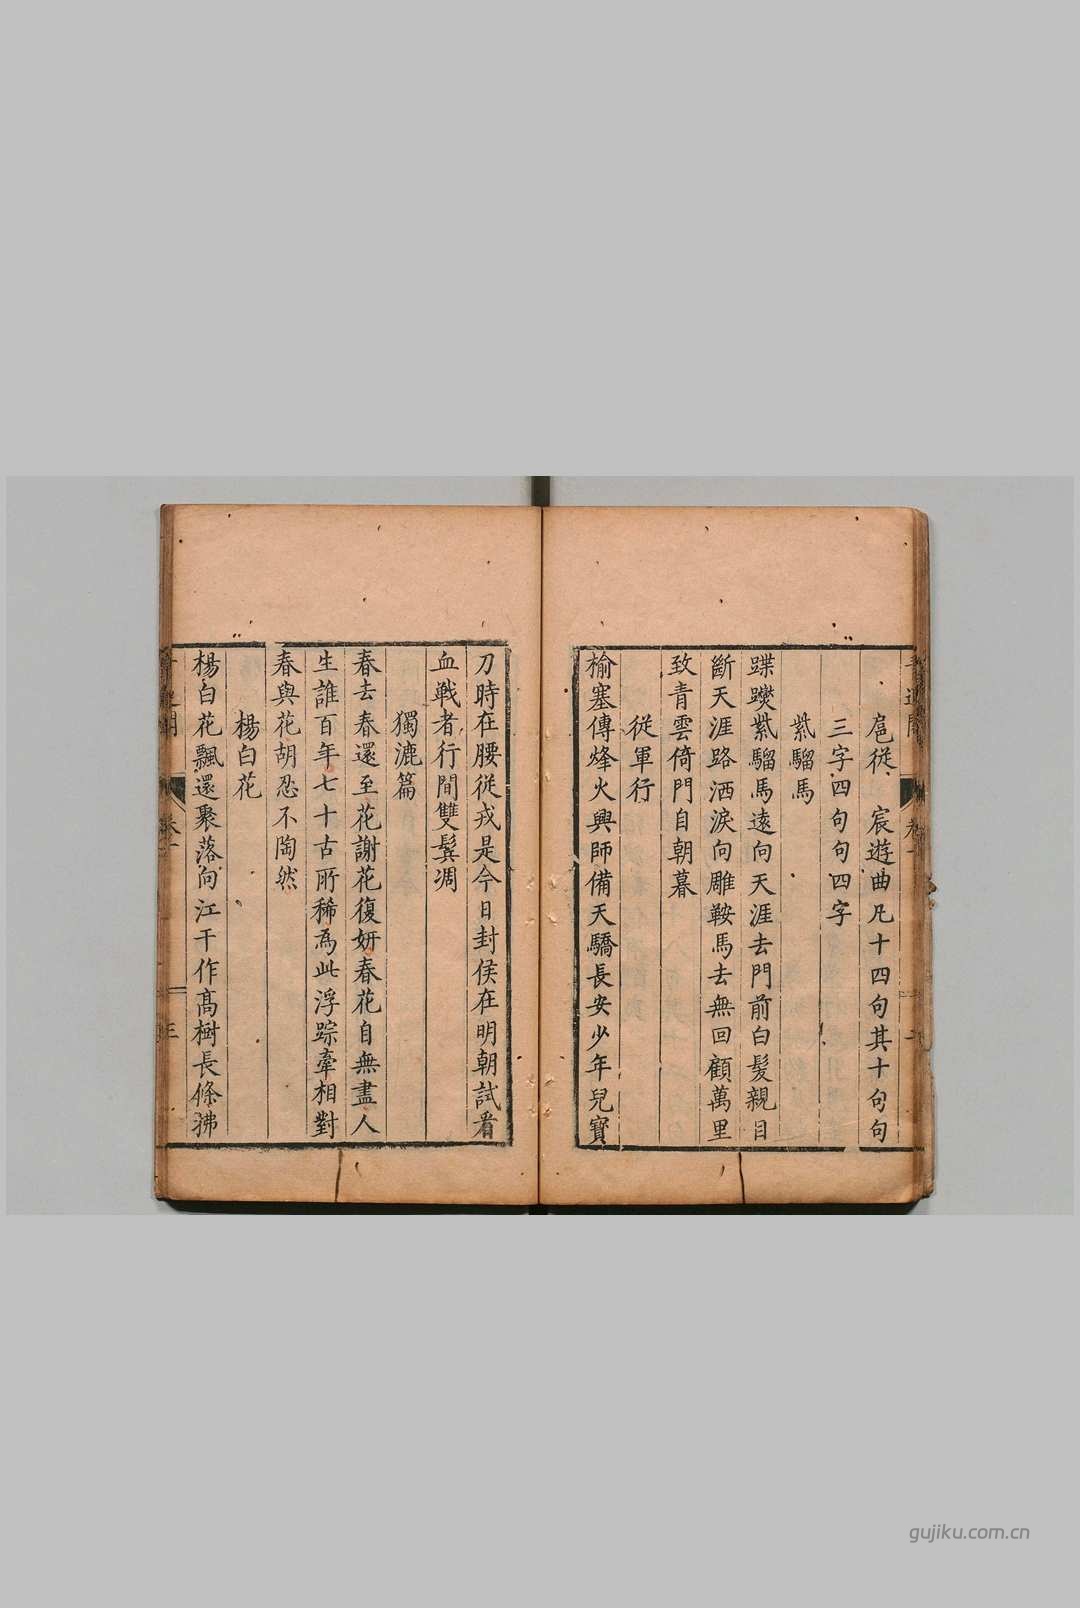 扈從 宸遊曲凡十四句其十句句
三字四句句四字
紫騮馬
蹀躞紫騮馬遠向天涯去門前白髮親目
斷天涯路洒淚向雕鞍馬去無回顧萬里
致青雲倚門自朝暮
從軍行
榆塞傳烽火興師備天驕長安少年兒寶
刀時在腰從戎是今日封侯在明朝試看
血戰者行間雙鬂凋
獨漉篇
春去春還至花謝花復妍春花自無盡人
生誰百年七十古所稀為此浮踪牽相對
春與花胡忍不陶然
楊白花
楊白花飄還聚落向江干作高樹長條拂
卷一
三
gujiku.com.cn